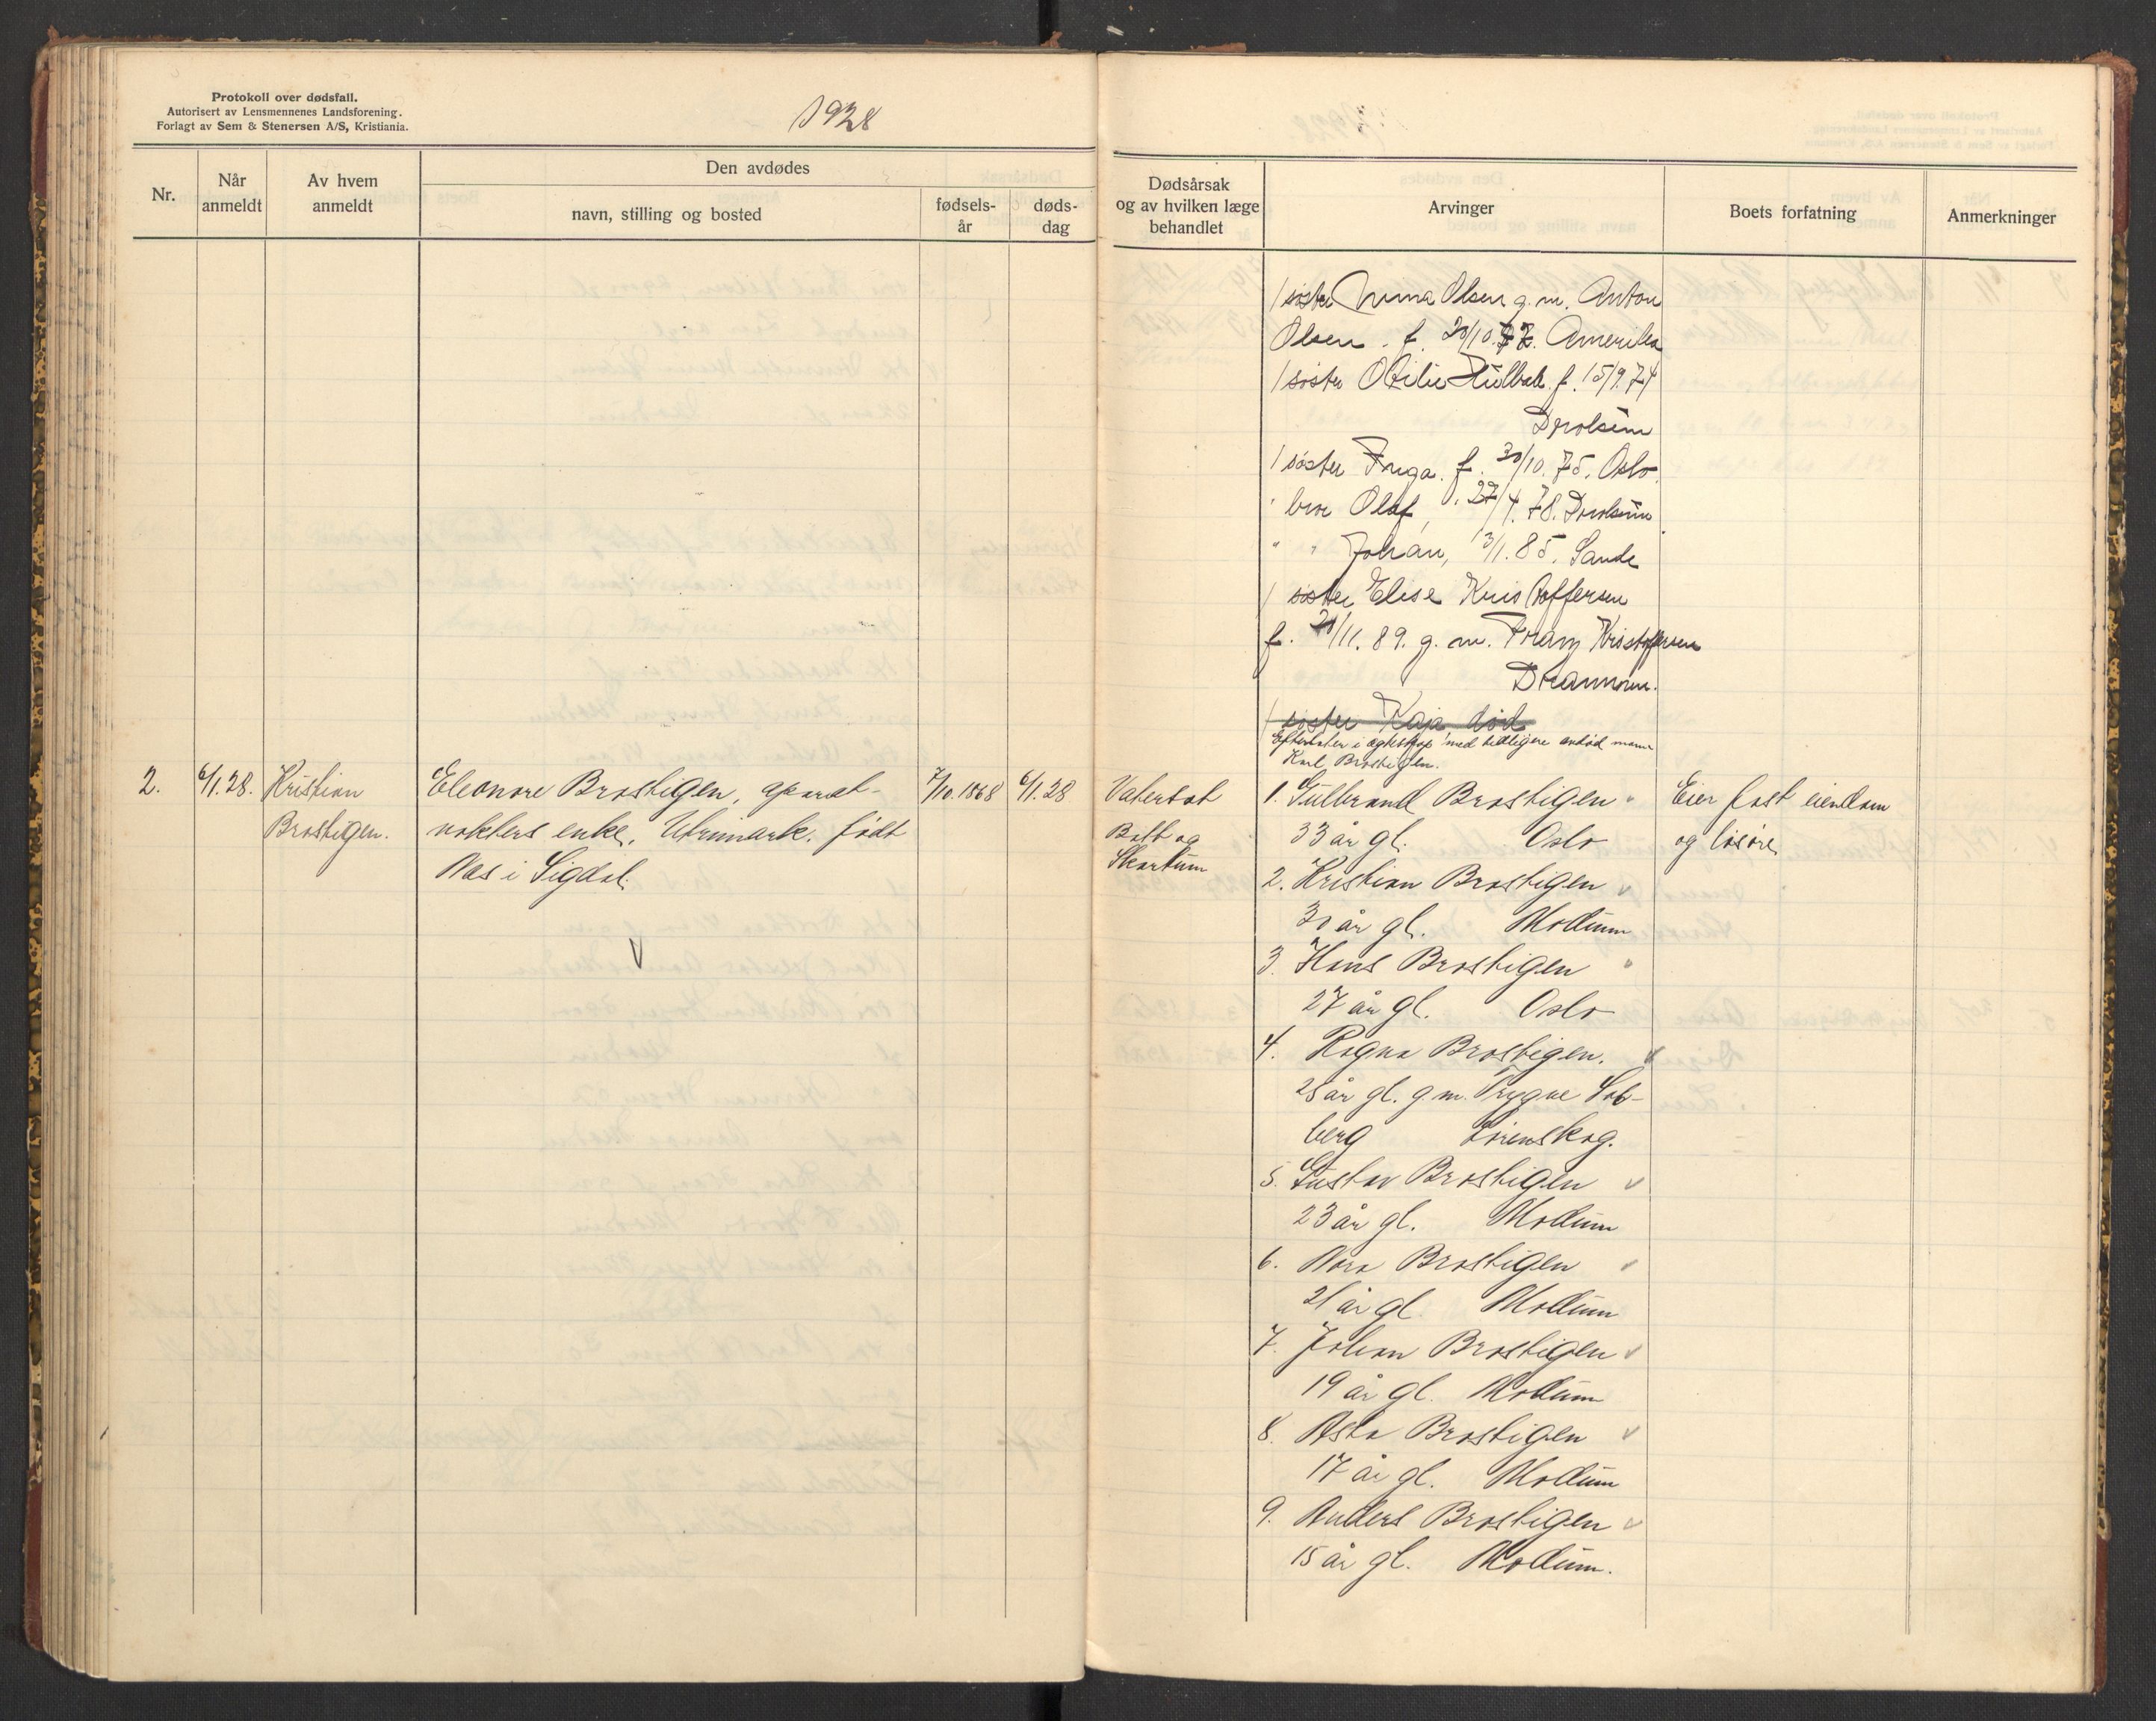 Protokoll over dødsfall.
Autorisert av Lensmennenes Landsforening.
Forlagt av Sem & Stenersen A/S, Kristiania.
1928
Nr.
Når anmeldt
Av hvem anmeldt
Den avdødes
navn, stilling og bosted
fødsels-
år
døds-
dag
Dødsårsak
og av hvilken læge
behandlet
Arvinger
Boets forfatning
Anmerkninger
1 søster Anna Olsen g.m. Anton
Olsen. f. 20/10. Amerika
1 søster Otilie f. 15/9.74
Drolsum
1 søster Inga. f. 30/10.75. Oslo
" bror Olaf, 27/4.78. Drolsum
" " Johan, 13/1.85. Sande
1 søster Elise Kristoffersen
f. /11.89. g.m. Franz Kristoffersen
Drammen.
1 søster Kaja død
Efterlater i egteskap med tidligere avdød mann
Karl Brostigen.
2.
6/1.28.
Kristian
Brostigen.
Eleonore Brostigen, aparat-
vokters enke, født
Aas i Sigdal.
7/10.1868
6/1.28
Vatersot
Bett og
Skartum
1. Gulbrand Brostigen
33 år gl. Oslo
2. Kristian Brostigen
30 år gl. Modum
3. Hans Brostigen
27 år gl. Oslo
4. Ragna Brostigen.
25 år gl. g.m. Trygve Sol-
berg Lørenskog.
5. Gustav Brostigen
23 år gl. Modum
6. Nora Brostigen
21 år gl. Modum
7. Johan Brostigen
19 år gl. Modum
8. Asta Brostigen
17 år gl. Modum
9. Anders Brostigen
15 år gl. Modum.
Eier fast eiendom
og løsøre